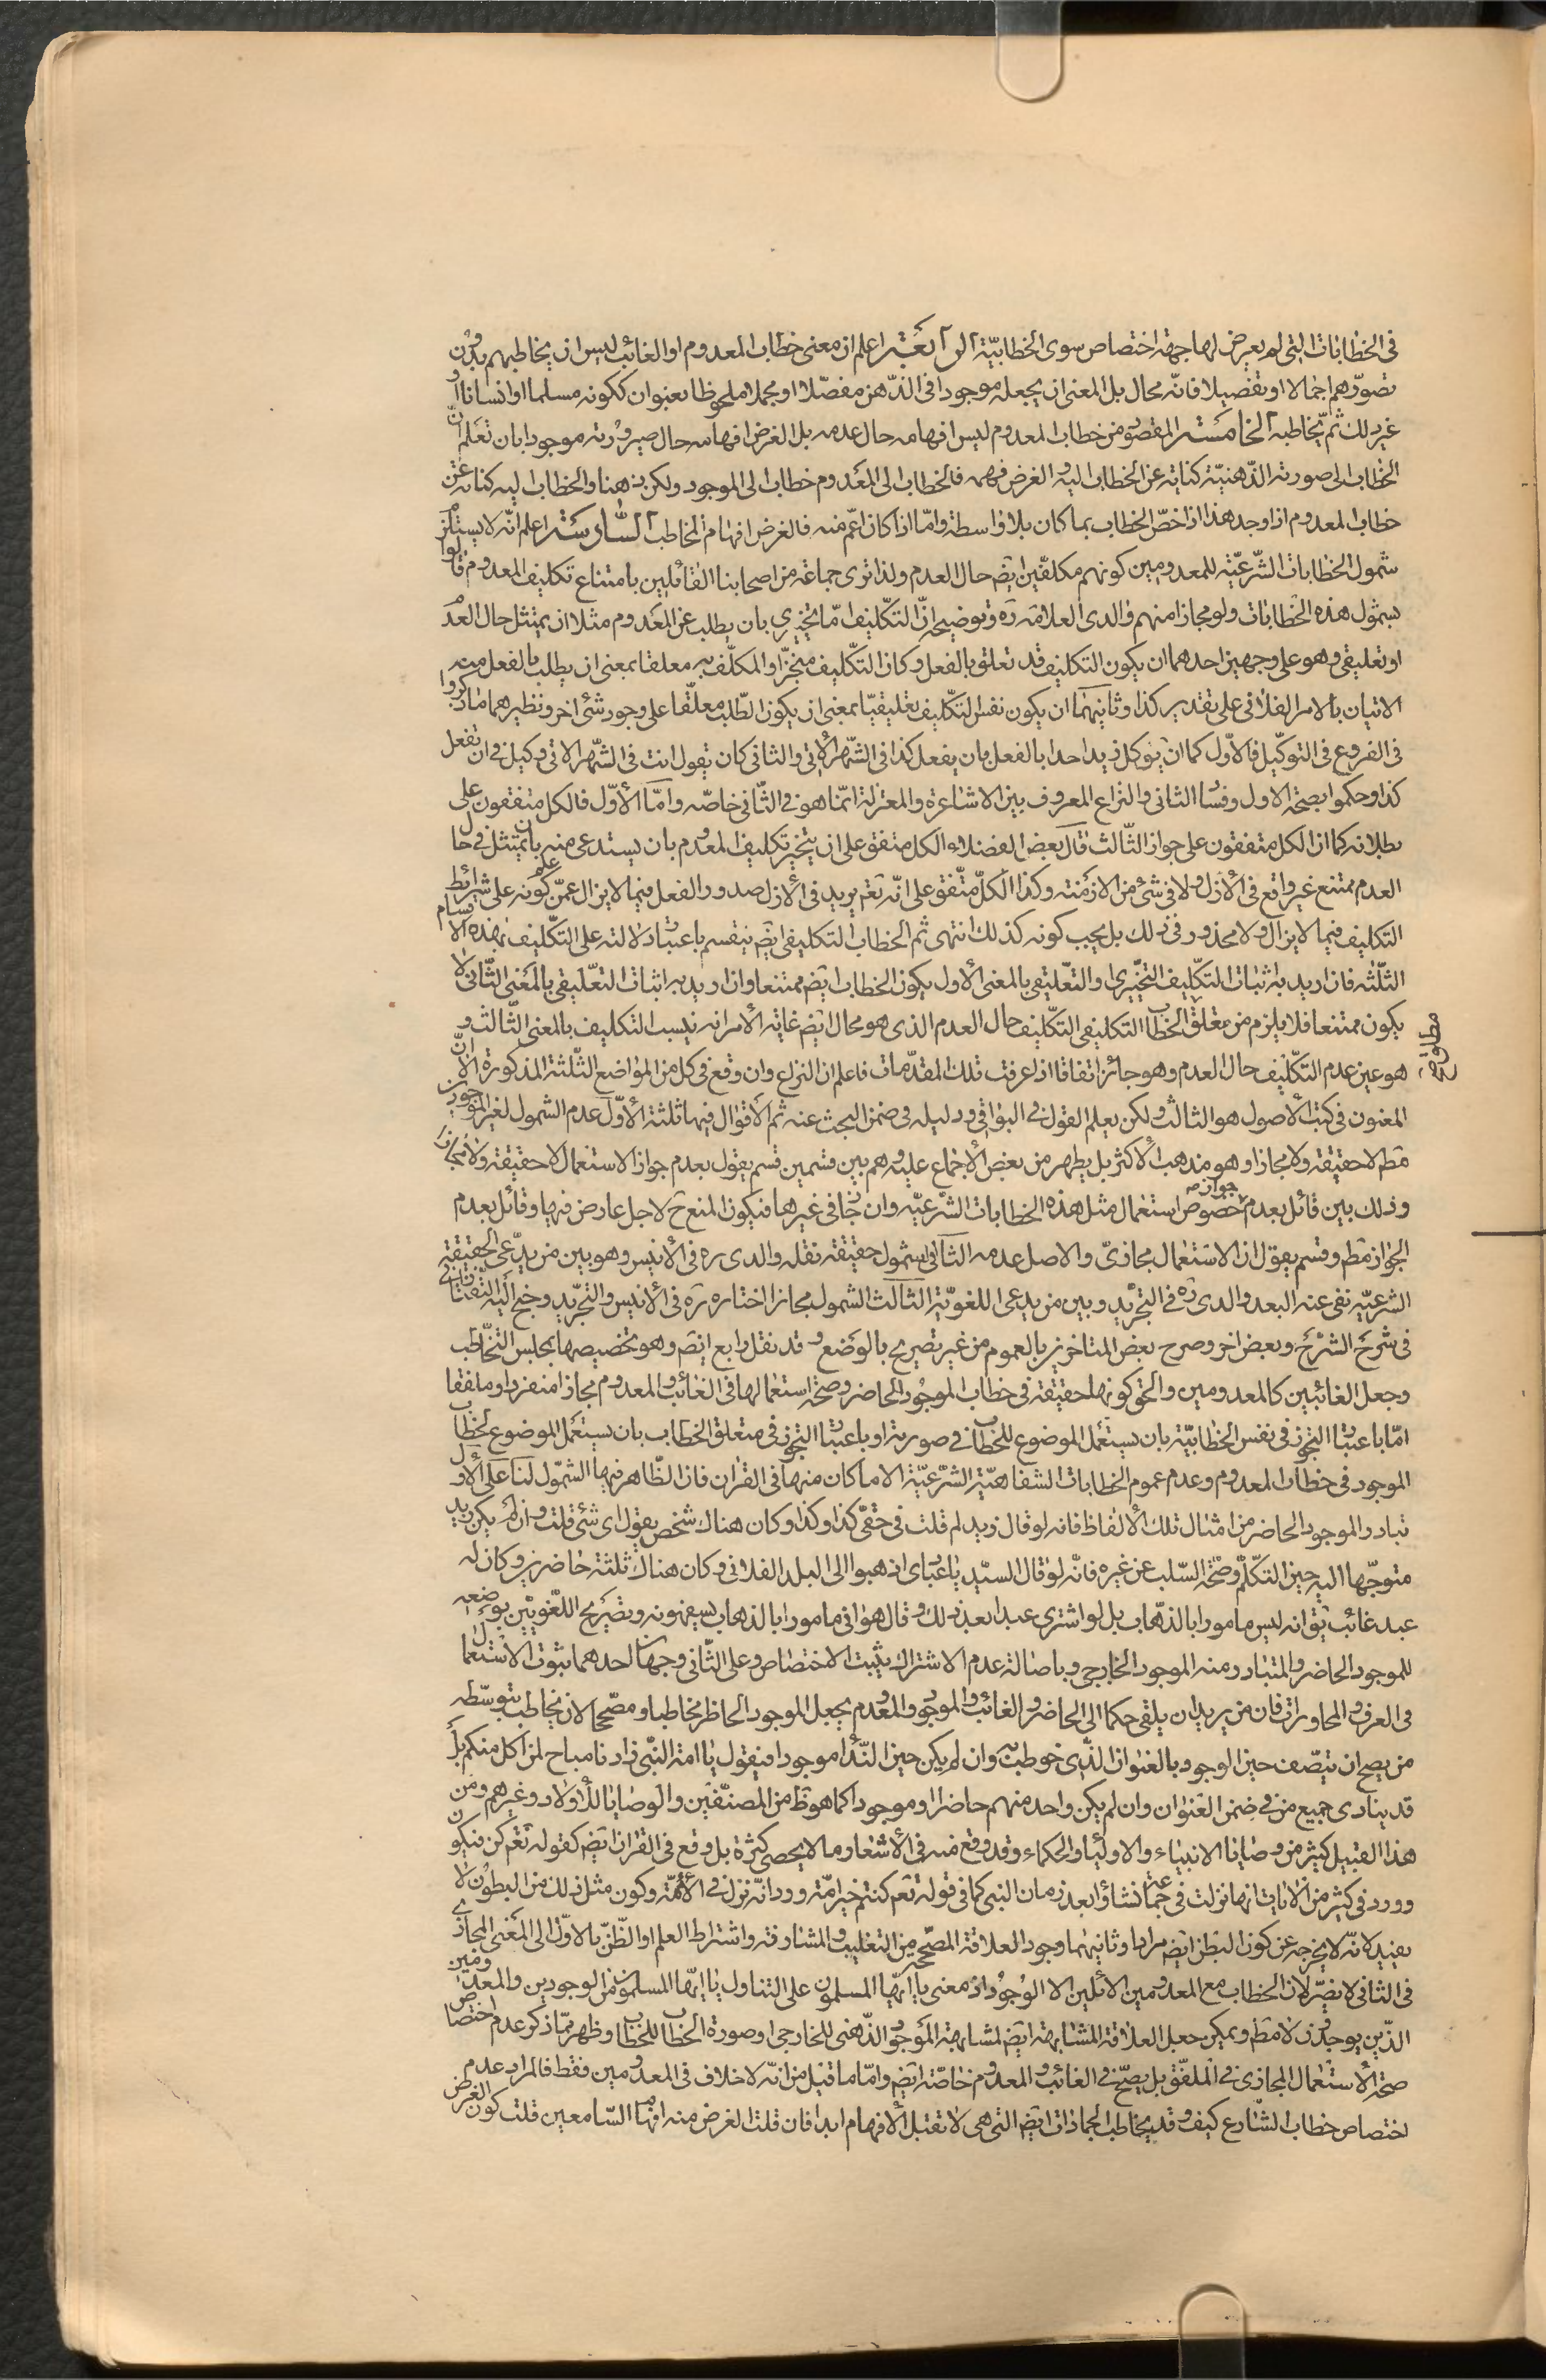 فى الخطابات التى لم يعرض لها جهة اختصاص سوى الخطابيّة الرابعة اعلم ان معنى خطاب المعدوم او الغائب ليس ان يخاطبهم بدون
تصوّرهم اجمالا او تفصيلا فانّه محال بل المعنى ان يجعله موجودا فى الذّهن مفصّلا او مجملا ملحوظا بعنوان ككونه مسلما او انسانا او
غير ذلك ثمّ يخاطبه الخامسة المقصود من خطاب المعدوم ليس افهامه حال عدمه بل الغرض افهامه حال صيرورته موجودا بان تعلم انّ
الخطاب الى صورته الذّهنيّة كناية عن الخطاب اليه والغرض فهمه فالخطاب الى المعدوم خطاب الى الموجود ولكن ذهنا والخطاب اليه كناية عن
خطاب المعدوم اذا وجد هذا اذا خصّ الخطاب بما كان بلا واسطة وامّا اذا كان اعّم منه فالغرض افهام المخاطب السّادسة اعلم انّه لا يستلزم
شمول الخطابات الشّرعيّة للمعدومين كونهم مكلفّين ايضَ حال العدم ولذا ترى جماعة من اصحابنا القائلين بامتناع تكليف المعدوم قالوا
بشمول هذه الخطابات ولو مجازا منهم والدى العلامة ره وتوضيحه انّ التكّليف امّا تنجيزى بان يطلب عن المعدوم مثلا ان يمتثل حال العدم
او تعليقى وهو على وجهين احدهما ان يكون التكليف قد تعلق بالفعل وكان التكّليف منجزّا والمكلّف به معلقا بمعنى ان يطلب بالفعل منه
الاتيان بالامر الفلانى على تقدير كذا وثانيهما ان يكون نفس التكّليف تعليقيّا بمعنى ان يكون الطّلب معلقّا على وجود شئ اخر ونظيرهما ما ذكروا
فى الفروع فى التوكّيل فالاّول كما ان يوكل زيد احدا بالفعل بان يفعل كذا فى الشّهر الاتى والثانى كان يقول انت فى الشّهر الاتى وكيل فى ان تفعل
كذا وحكموا بصحّة الاول وفساد الثانى والنزاع المعروف بين الاشاعرة والمعتزلة انمّا هو فى الثّانى خاصّه وامّا الأوّل فالكل متفقون على
بطلانه كما ان الكل متفقون على جواز الثّالث قال بعض الفضلاء الكل متفق على ان تنجيز تكليف المعدوم بان يستدعى منه بان يمتثل فى حال
العدم ممتنع غير واقع فى الأزل ولا فى شئ من الازمنة وكذا الكلّ متّفق على انّه تعَم يريد فى الأزل صدور الفعل فيما لا يزال عمّن علم كونه على شرايط
التكليف فيما لا يزال ولا محذور فى ذلك بل يجب كونه كذلك انتهى ثم الخطاب التكليفى ايضَ ينقسم باعتبار دلالته على التكّليف بهذه الاقسام
الثلّثه فان اريد به اثبات التكّليف التنجّيزى او التعّليقى بالمعنى الأول يكون الخطاب ايضَ ممتنعا وان اريد به اثبات التعّليقى بالمعنى الثّانى لا
يكون ممتنعا فلا يلزم من تعلّق الخطاب التكليفى التكّليف حال العدم الذى هو محال ايضَ غاية الأمر انه يثبت التكليف بالمعنى الثّالث و
هو عين عدم التكّليف حال العدم وهو جائز اتفاقا اذا عرفت تلك المقدّمات فاعلم ان النزاع وان وقع فى كل من المواضع الثّلثة المذكورة الا انّ
المعنون فى كتب الأصول هو الثالث ولكن يعلم القول فى البواقى ودليله فى ضمن البحث عنه ثم الاقوال فيها ثلثة الأوّل عدم الشمول لغير الموجودين
مطَم لا حقيقة ولا مجازا وهو مذهب الأكثر بل يظهر من بعض الأجماع عليه وهم بين قسمين قسم يقول بعدم جواز الاستعمال لا حقيقة ولا مجازا
وذلك بين قائل بعدم جواز خصوص استعمال مثل هذه الخطابات الشّرعيّه وان جاز فى غيرها فيكون المنع ح لاجل عارض فيها وقائل بعدم
الجواز مطَم وقسم يقول ان الاستعمال مجازىّ والاصل عدمه الثّانى الشمول حقيقة نقله والدى ره فى الأنيس وهو بين من يدّعى الحقيقة
الشرعيّه نفى عنه البعد والدى ره فى التجريد وبين من يدعى اللغويّة الثالث الشمول مجازا اختاره ره فى الأنيس والتجريد وجنح اليه التفتازانى
فى شرح الشرّح وبعض اخر وصرح بعض المتاخرين بالعموم من غير تصريح بالوضع وقد نقل رابع ايضَ وهو تخصيصها بمجلس التخّاطب
وجعل الغائبين كالمعدومين والحق كونها حقيقة فى خطاب الموجود الحاضر وصحّة استعمالها فى الغائب والمعدوم مجازا منفردا وملفقا
امّا باعتبار التجوز فى نفس الخطابيّة بان يستعمل الموضوع للخطاب فى صورته او باعتبار التجوز فى متعلق الخطاب بان يستعمل الموضوع لخطاب
الموجود فى خطاب المعدوم وعدم عموم الخطابات الشفاهيّة الشرّعيّة الا ما كان منها فى القران فان الظّاهر فيها الشمّول لنا على الأول
تبادر الموجود الحاضر من امثال تلك الألفاظ فانه لو قال زيد لم قلت فى حقّى كذا وكذا وكان هناك شخص يقول اى شئ قلت وان لم يكن زيد
متوجّها اليه حين التكّلم وصحّة السّلب عن غيره فانّه لو قال السيّد يا عبادى اذهبوا الى البلد الفلانى وكان هناك ثلثة حاضرين وكان له
عبد غائب يقَ انه ليس مامورا بالذّهاب بل لو اشترى عبدا بعد ذلك وقال هو انى مامور بالذهاب يسفهونه وتصريح اللّغويّين بوضعه
للموجود الحاضر والمتبادر منه الموجود الخارجى وباصالة عدم الاشتراك يثبت الاختصاص وعلى الثّانى وجهان احدهما ثبوت الاستعمال
فى العرف والمحاورات فان من يريد ان يلقى حكما الى الحاضر والغائب والموجود والمعدوم يجعل الموجود الحاظر مخاطبا ومصححّا لان يخاطب بتوسّطه
من يصح ان يتصّف حين الوجود بالعنوان الذّى خوطب به وان لم يكن حين النّدا موجودا فيقول يا امة النّبى زادنا مباح لمن اكل منكم بل
قد ينادى جميع من فى ضمن العنوان وان لم يكن واحد منهم حاضرا او موجودا كما هو ظَ من المصنّفين والوصايا للأولاد وغيرهم ومن
هذا القبيل كثير من وصايا الانبياء والاولياء والحكماء وقد وقع منه فى الأشعار ما لا يحصى كثرة بل وقع فى القران ايضَ كقوله تعَم كن فيكون
وورد فى كثير من الايات انها نزلت فى جماعة نشاؤا بعد زمان النبى كما فى قوله تعَم كنتم خير امّة وورد انّه نزل فى الأئمّة وكون مثل ذلك من البطون لا
يفيد لانّه لا يخرجه عن كون البطن ايضَ مرادا وثانيهما وجود العلاقة المصّححة من التغليب والمشارفة واشتراط العلم او الظّنّ بالأوّل الى المعنى المجازى
فى الثانى لا يضرّ لان الخطاب مع المعدومين الائلين الا الوجود اذ معنى يا ايّها المسلمون على التناول يا ايّها المسلمون من الموجودين والمعدومين
الذّين يوجدون لا مطَم ويمكن جعل العلاقة المشابهة ايضَ لمشابهة الموجود الذّهنى للخارجى او صورة الخطاب للخطاب وظهر ممّا ذكر عدم اختصاص
صحّة الأستعمال المجازى فى الملفّق بل يصحّ فى الغائب والمعدوم خاصّة ايضَ وامّا ما قيل من انّه لا خلاف فى المعدومين فقط فالمراد عدم
اختصاص خطاب الشّارع كيف وقد يخاطب الجمادات ايضَ التى هى لا تقبل الأفهام ابدا فان قلت الغرض منه افهام السّامعين قلت كون الغرض